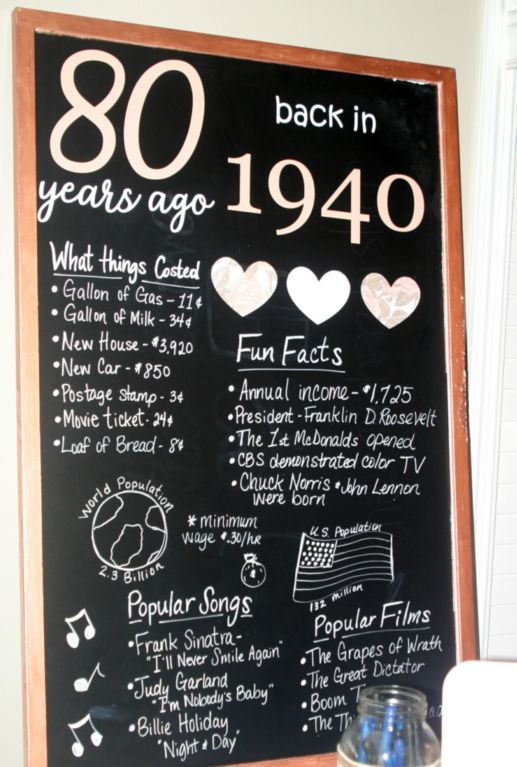 80
years ago
back in
1940
What things Costed
• Gallon of Gas - 11¢
• Gallon of Milk - 34¢
• New House - $3,920
• New Car - $850
• Postage stamp - 3¢
• Movie ticket - 24¢
• Loaf of Bread - 8¢
Fun Facts
• Annual income - $1,725
• President - Franklin D. Roosevelt
• The 1st McDonalds opened
• CBS demonstrated color TV
• Chuck Norris • John Lennon
were born
World Population
2.3 Billion
* minimum
wage $.30/hr
$
U.S. Population
132 million
Popular Songs
• Frank Sinatra -
"I'll Never Smile Again"
• Judy Garland
"I'm Nobody's Baby"
• Billie Holiday
"Night & Day"
Popular Films
• The Grapes of Wrath
• The Great Dictator
• Boom
• The